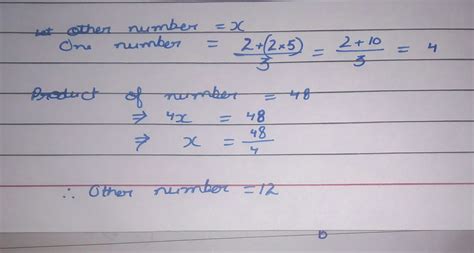 let other number = x
One number = (2+(2×5))/3 = (2+10)/3 = 4
Product of number = 48
⇒ 4x = 48
⇒ x = 48/4
∴ Other number = 12